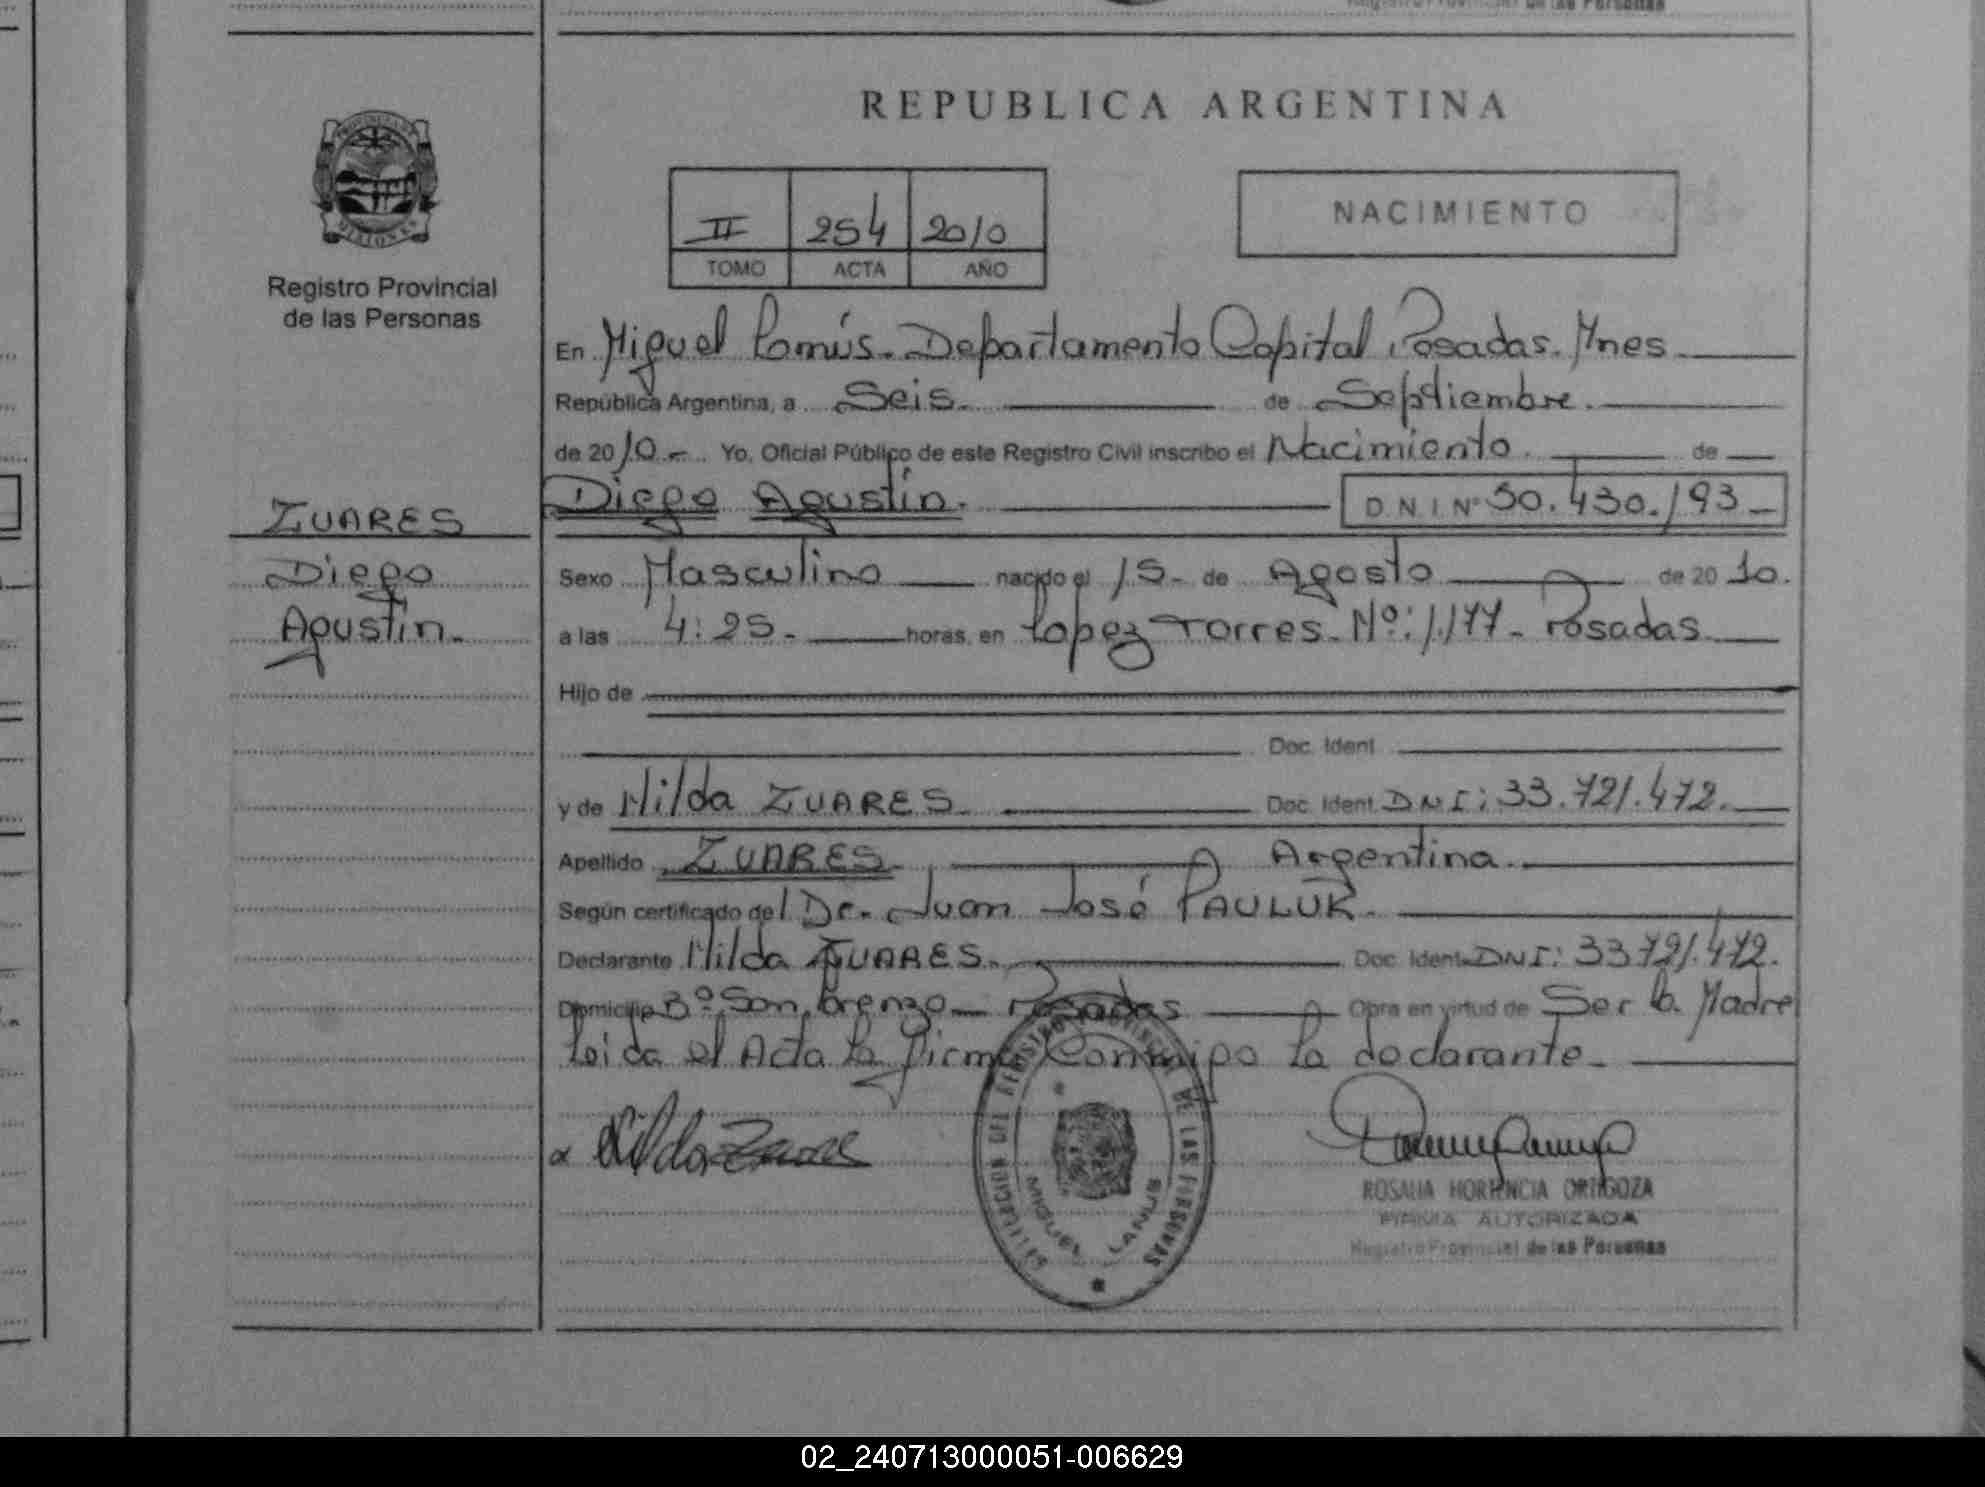 Registro Provincial de las Personas
REPUBLICA ARGENTINA
PROVINCIA DE
MISIONES
Registro Provincial
de las Personas
II 254 2010
TOMO ACTA AÑO
NACIMIENTO
En Miguel Lanús. Departamento Capital Posadas. Mnes
República Argentina, a Seis. de Septiembre.
de 2010.- Yo, Oficial Público de este Registro Civil inscribo el Nacimiento. de
Diego Agustín. D N I Nº 50.430.193
ZUARES
Diego
Agustín.
Sexo Masculino nacido el 15. de Agosto de 2010.
a las 4:25. horas, en Lopez Torres. Nº: 1.177 - Posadas.
Hijo de
Doc. Ident
y de Hilda ZUARES. Doc. Ident. DNI: 33.721.472.
Apellido ZUARES. Argentina.
Según certificado del Dr. Juan José PAULUK.
Declarante Hilda ZUARES. Doc. Ident. DNI: 33.721.472.
Domicilio Bº San Lorenzo - Posadas Obra en virtud de Ser la Madre
Leída el Acta la firma Conmigo la declarante.
Hilda Zuares
DEL REGISTRO PROVINCIAL DE LAS PERSONAS
MIGUEL LANUS
ROSALIA HORTENCIA ORTIGOZA
FIRMA AUTORIZADA
Registro Provincial de las Personas
02_240713000051-006629